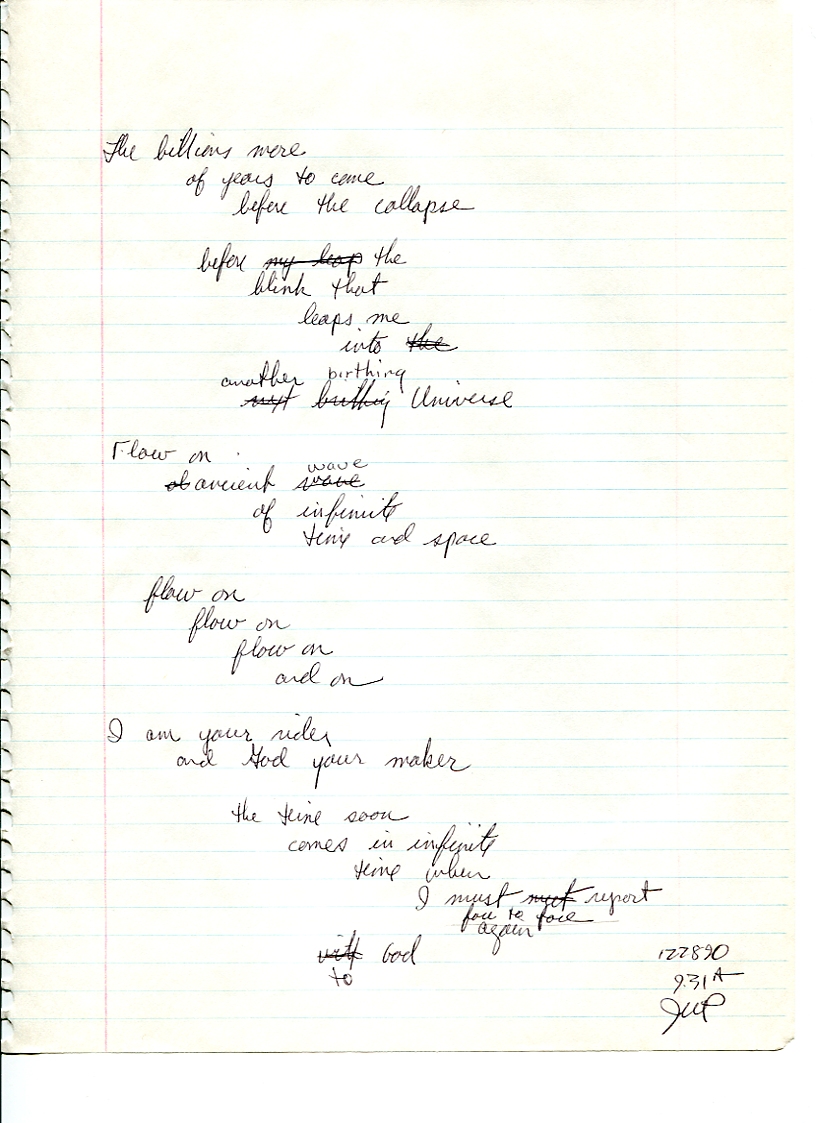 The billions more
of years to come
before the collapse
before my leap the
blink that
leaps me
into the
another birthing
next birthing Universe
Flow on
wave
ancient wave
of infinite
time and space
flow on
flow on
flow on
and on
I am your rider
and God your maker
the time soon
comes in infinite
time when
I must meet report
face to face
again
with God
to
122890
9:31 A
JWP